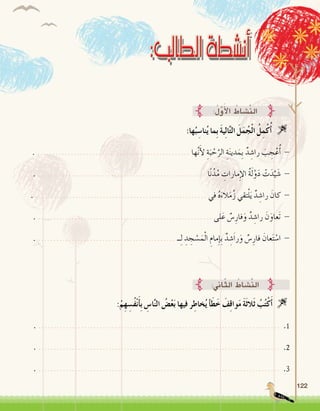 أنشطة الطالب:
النَّشاطُ الْأَوَّلُ
أُكْمِلُ الْجُمَلَ التّالِيَةَ بِما يُناسِبُها:
– أُعْجِبَ راشِدٌ بِمَدينَةِ الرَّحْبَةِ لِأَنَّها .
– شَيَّدَتْ دَوْلَةُ الإماراتِ مُدُنًا .
– كانَ راشِدٌ يَلْتَقي زُمَلاءَهُ في .
– تَعاوَنَ راشِدٌ وَفارِسٌ عَلَى .
– اسْتَعانَ فارِسٌ وَراشِدٌ بِإِمامِ الْمَسْجِدِ لِـ .
النَّشاطُ الثّاني
أَكْتُبُ ثَلاثَةَ مَواقِفَ خَطَأٍ يُخاطِرُ فيها بَعْضُ النّاسِ بِأَنْفُسِهِمْ:
1. .
2. .
3. .
122